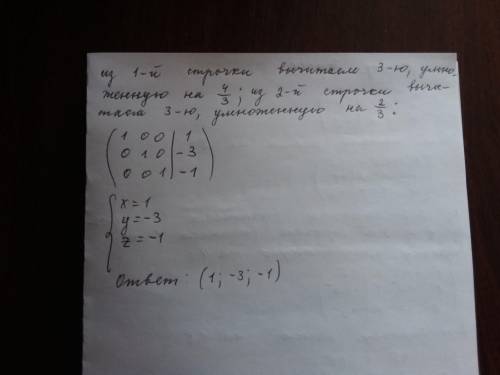 из 1-й строчки вычитаем 3-ю, умно-
женную на 4/3; из 2-й строчки выче-
таем 3-ю, умноженную на 2/3:
( 1 0 0 | 1
0 1 0 | -3
0 0 1 | -1 )
{ x = 1
y = -3
z = -1
Ответ: (1; -3; -1)